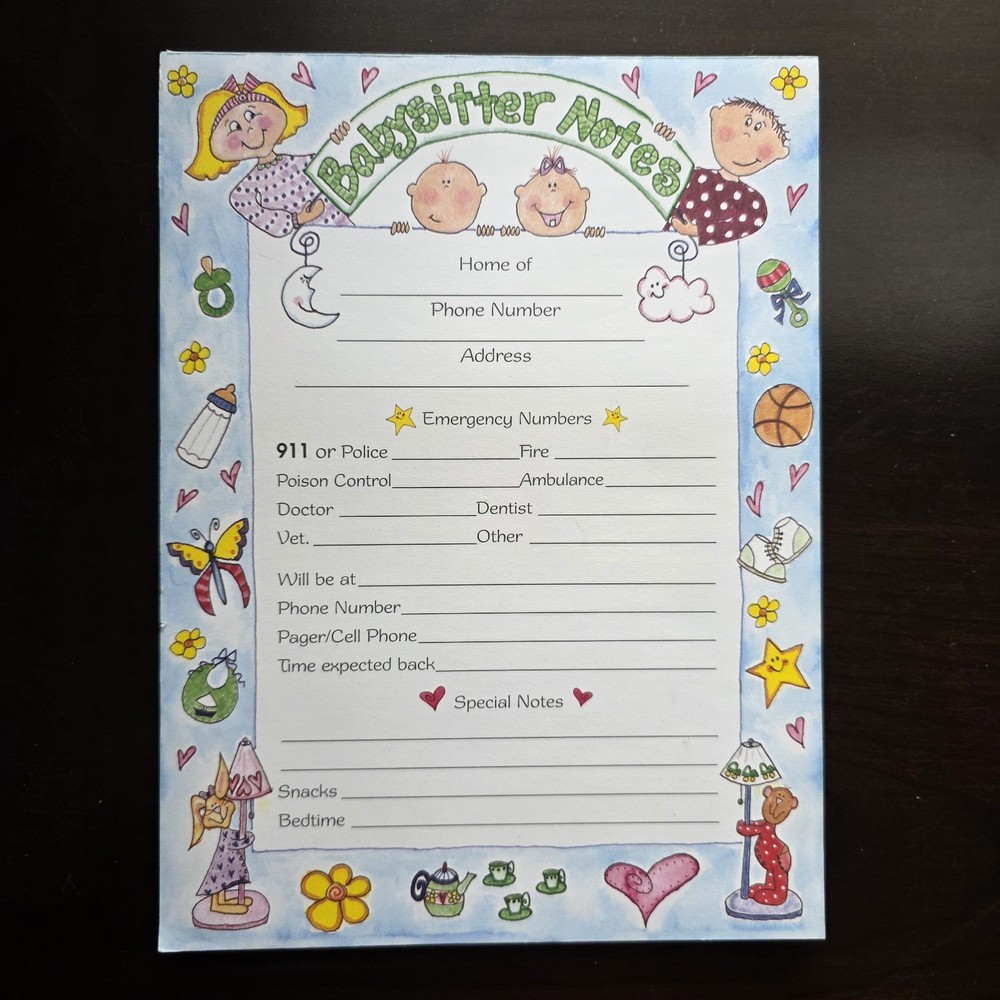 Babysitter Notes
Home of
Phone Number
Address
Emergency Numbers
911 or Police Fire
Poison Control Ambulance
Doctor Dentist
Vet. Other
Will be at
Phone Number
Pager/Cell Phone
Time expected back
Special Notes
Snacks
Bedtime